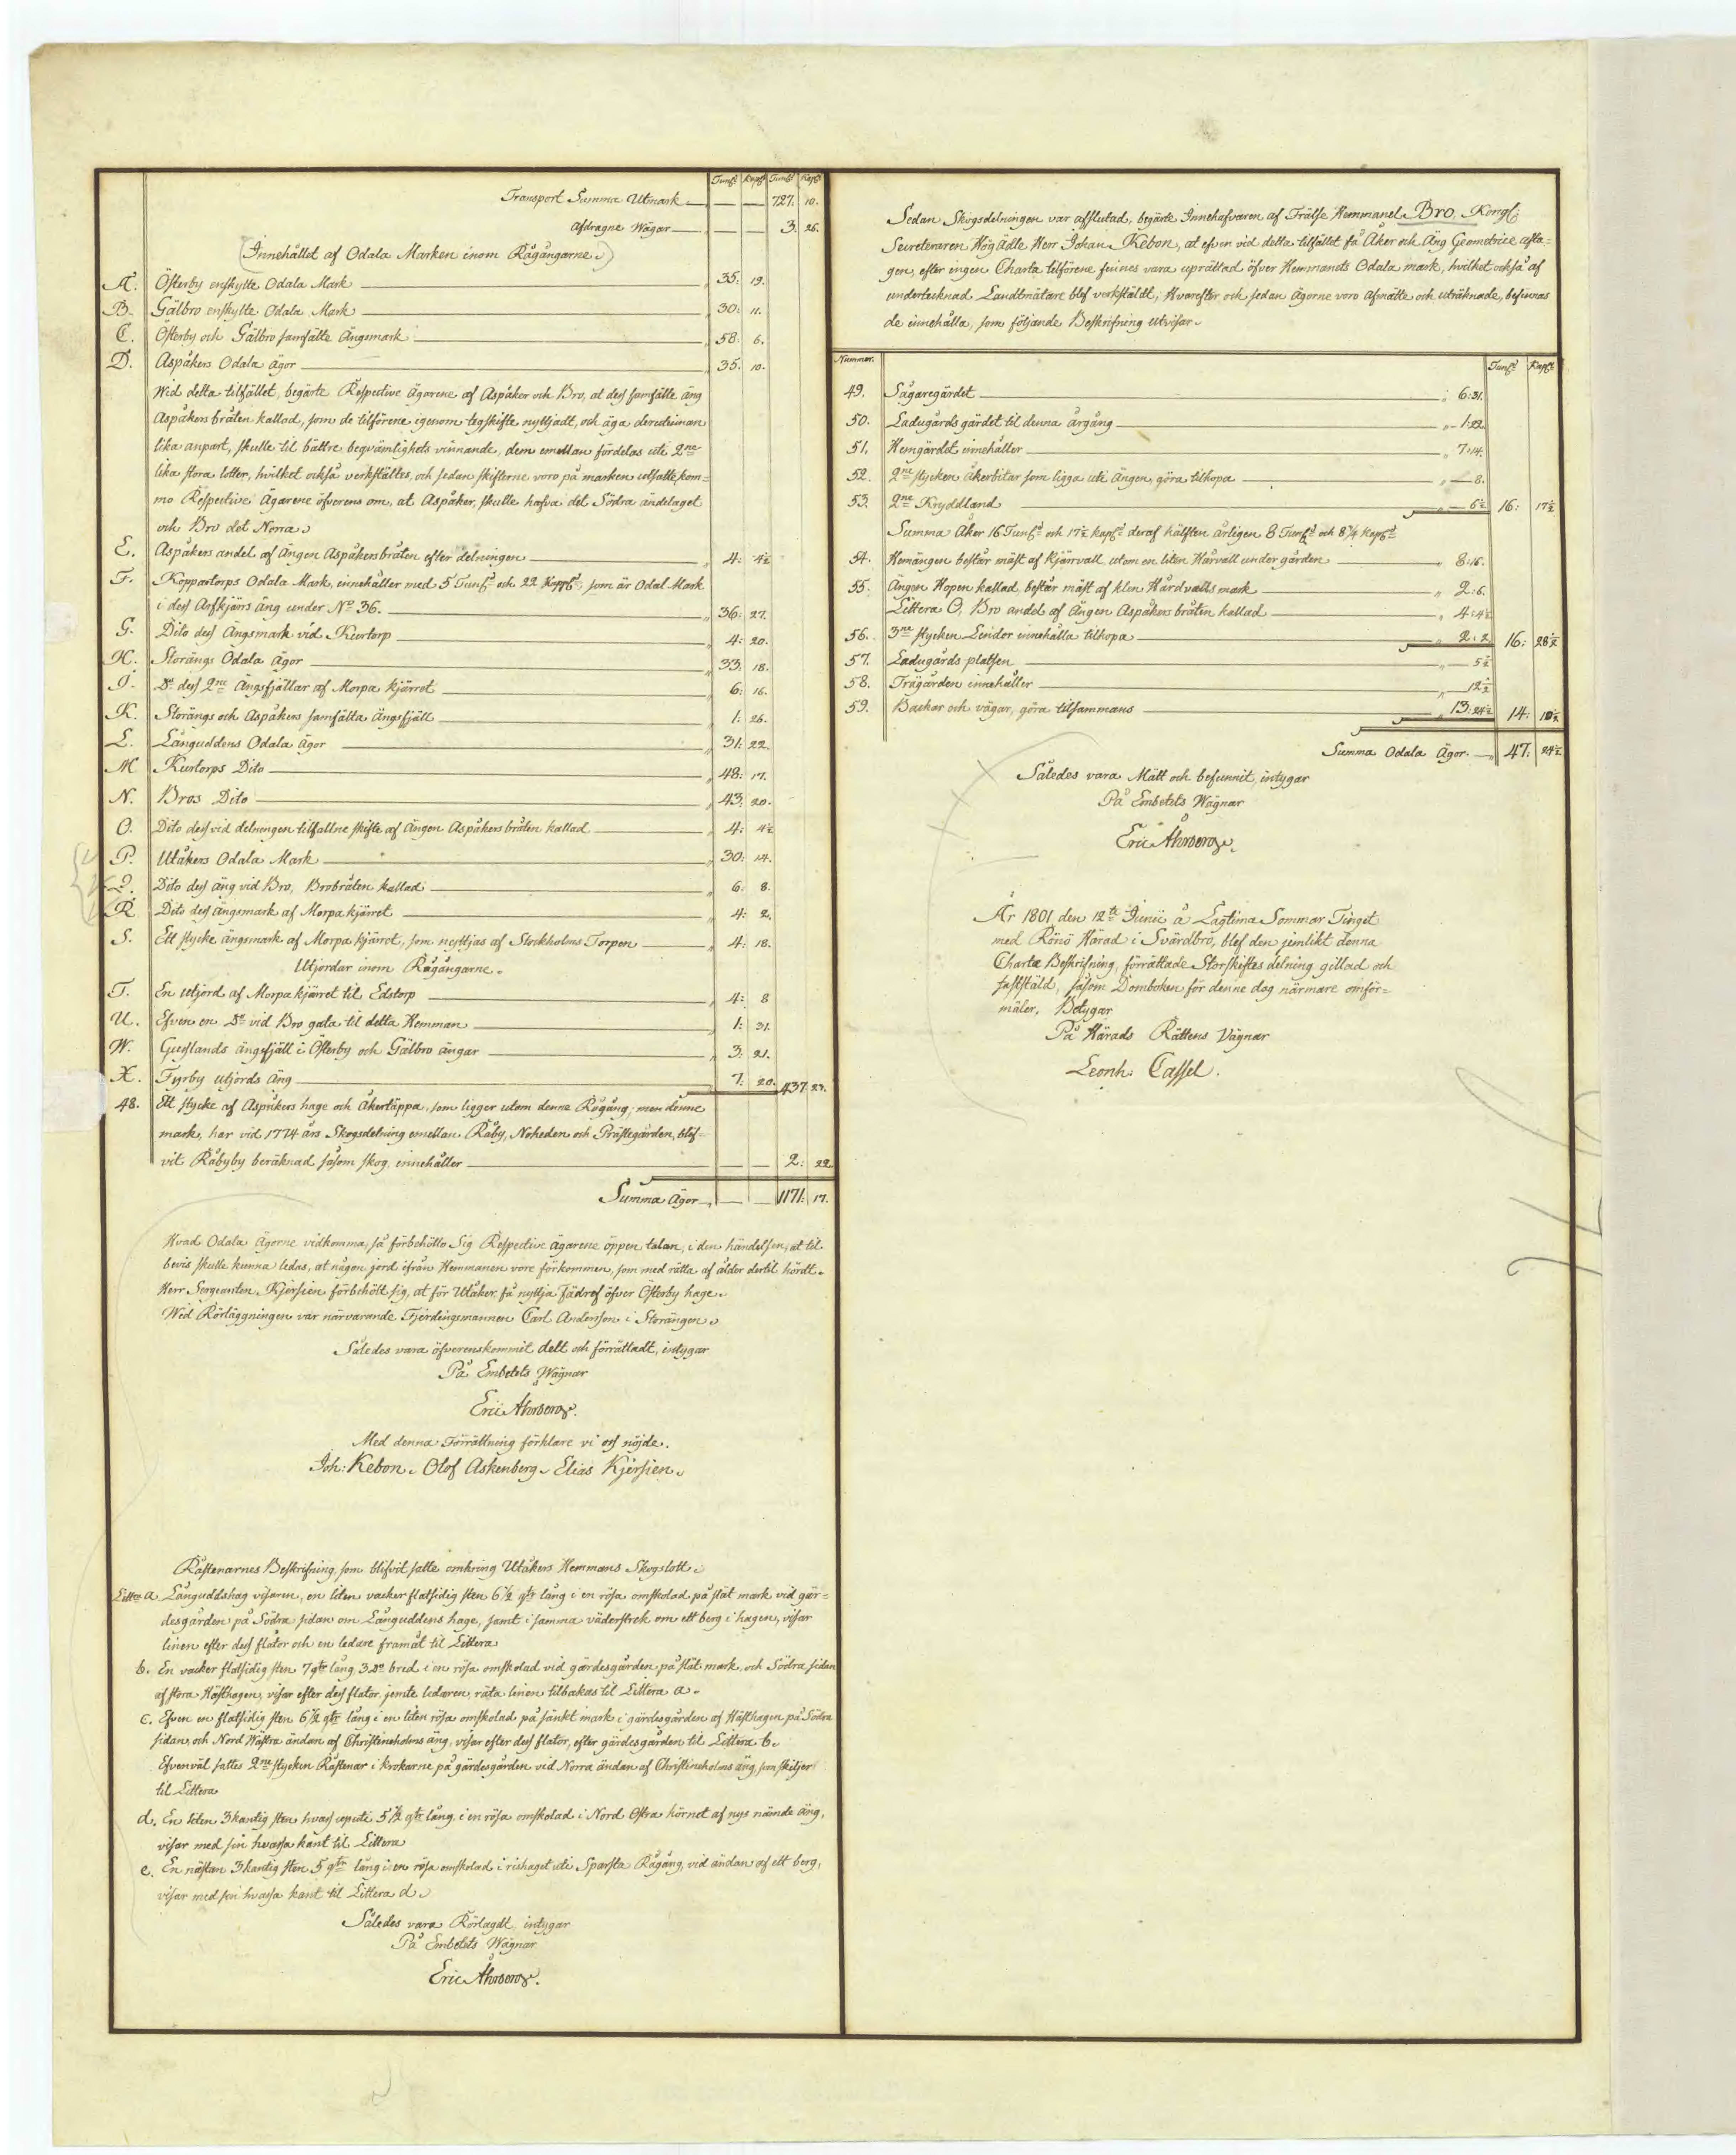 Tunl^d Kapl^d Tunl^d Kapl^d
Transport Summa Utmark — — 727. 10.
Afdragne Wägar — — 3. 26.
(Innehållet af Odala Marken inom Rågångarne.)
A. Österby enskylte Odala Mark 35. 19.
B. Gälbro enskylte Odala Mark 30: 11.
C. Österby och Gälbro samfälte Ängsmark 58. 6.
D. Aspåkers Odala ägor 35. 10.
Wid detta tilfället, begärte Respective Ägarene af Aspåker och Bro, at dess samfälte äng
Aspåkers bråten kallad, som de tilförene igenom tegskifte nyttjadt, och äga deruti inan
lika anpart, skulle til bättre beqvämlighets vinnande, dem emellan fördelas uti 2^ne
lika stora lotter, hvilket också verkställtes, och sedan skifterne voro på marken utsatte, kom=
mo Respective Ägarene öfverens om, at Aspåker, skulle hafva det Södra ändelaget
och Bro det Norra.
E. Aspåkers andel af ängen Aspåkersbråten efter delningen 4: 4½
F. Koppartorps Odala Mark, innehåller med 5 Tunl^d och 22 Kappl^d, som är Odal Mark
i dess Arfkjärs äng under N^o 36. 36: 27.
G. Dito dess Ängsmark vid Kurtorp 4: 20.
H. Storängs Odala ägor 33. 18.
J. D^o dess 2^ne Ängsfjällar af Morpa kjärret 6: 16.
K. Storängs och Aspåkers samfälta Ängsfjäll 1: 26.
L. Långuddens Odala ägor 31: 22.
M Kurtorps Dito 48: 17.
N. Bros Dito 43. 20.
O. Dito dess vid delningen tilfallne skifte af ängen Aspåkersbråten kallad 4: 4½
P. Utåkers Odala Mark 30: 14.
Q. Dito dess äng vid Bro, Brobråten kallad 6: 8.
R Dito dess ängsmark af Morpa kjärret 4: 2.
S. Ett stycke ängsmark af Morpa kjärret, som nyttjas af Stockholms Torpen 4: 18.
Utjordar inom Rågångarne.
T. En utjord af Morpa kjärret til Edstorp 4: 8
U. Efven en D^o vid Bro gata til detta Hemman 1: 31.
W. Gusslands ängsfjäll i Österby och Gälbro ängar 3: 21.
X. Fyrby utjords äng 7: 20. 437. 27.
48. Ett stycke af Aspåkers hage och Åkertäppa, som ligger utom denne Rågång; men denne
mark, har vid 1774 års Skogsdelning emellan Råby, Noheden och Prästegården, blif=
vit Råbyby beräknad såsom skog, innehåller — — 2: 22.
Summa Ägor — — 1171: 17.
Hvad Odala Ägorne vidkomma, så förbehöllo Sig Respective ägarene öppen talan, i den händelsen, at til
bevis skulle kunna ledas, at någon jord ifrån Hemmanen vore förkommen, som med rätta af ålder dertil hördt.
Herr Sergeanten Kjersien förbehölt sig, at för Utåker, få nyttja Fädref öfver Österby hage.
Wid Rörläggningen var närvarande Fjerdingsmannen Carl Andersson i Storängen.
Således vara öfverenskommit delt och förrättadt, intygar
På Embetets Wägnar
Eric Åhrberg.
Med denna Förrättning förklare vi oss nöjde.
Joh: Kebon. Olof Askenberg. Elias Kjersien.
Råstenarnes Beskrifning, som blifvit satte omkring Utåkers Hemmans Skogslott.
Litt^ra a Långuddshag visaren, en liten vacker flatsidig sten 6½ qtr lång i en rösa omskolad på slät mark vid gär=
desgården på Södra sidan om Långuddens hage, samt i samma väderstrek om ett berg i hagen, visar
linen efter dess flator och en ledare framåt til Littera
b. En vacker flatsidig sten 7 qtr lång 3 D^o bred i en rösa omskolad vid gärdesgården på slät mark, och Södra sidan
af stora Hästhagen, visar efter dess flator, jemte ledaren, räta linen tilbakas til Littera a.
c. Efven en flatsidig sten 6½ qtr lång i en liten rösa omskolad på sänkt mark i gärdesgården af Hästhagen på Södra
sidan, och Nord Wästra ändan af Christineholms äng, visar efter dess flator, efter gärdesgården til Littera b.
Efvenväl sattes 2^ne stycken Råstenar i krokarne på gärdesgården vid Norra ändan af Christineholms äng, som skiljer
til Littera
d. En liten 3 kantig sten hvass uputi 5½ qtr lång, i en rösa omskolad i Nord Ostra hörnet af nys nämde äng,
visar med sin hvassa kant til Littera
e. En nästan 3 kantig sten 5 qtr lång i en rösa omskolad i rishaget uti Sparsta Rågång, vid ändan af ett berg,
visar med sin hvassa kant til Littera d.
Således vara Rörlagdt, intygar
På Embetets Wägnar
Eric Åhrberg.
Sedan Skogsdelningen var afslutad, begärte Innehafvaren af Frälse Hemmanet Bro, Kongl:
Secreteraren Hög Ädle Herr Johan Kebon, at efven vid detta tilfället få Åker och Äng Geometrice afta=
gen, efter ingen Charta tilförene finnes vara uprättad öfver Hemmanets Odala mark, hvilket också af
undertecknad Landtmätare blef verkstäldt; Hvarefter och sedan Ägorne voro afmätte och uträknade, befinnas
de innehålla, som följande Beskrifning utvisar.
Nummer. Tunl^d Kapl^d
49. Sågaregärdet 6:31.
50. Ladugårds gärdet til denna årgång 1:22.
51. Hemgärdet innehåller 7:14.
52. 2^ne stycken åkerbitar som ligga uti Ängen, göra tilhopa — 8.
53. 2^ne Kryddland — 6½ 16: 17½
Summa Åker 16 Tunl^d och 17½ kapl^d deraf hälften årligen 8 Tunl^d och 8¾ kapl^d
54. Hemängen består mäst af Kjärrvall, utom en liten Hårvall under gården 8:16.
55. Ängen Hopen kallad, består mäst af klen Hårdvallsmark 2:6.
Littera O, Bro andel af Ängen Aspåkers bråten kallad 4:4½
56. 3^ne stycken Lindor innehålla tilhopa 2:2. 16: 28½
57. Ladugårds platsen — 5½
58. Trägården innehåller 12½
59. Backar och vägar, göra tilsammans 13:24½ 14: 10½
Summa Odala Ägor. 47: 24½
Således vara Mätt och befunnit, intygar
På Embetets Wägnar
Eric Åhrberg.
År 1801, den 12^te Junii å Lagtima Sommar Tinget
med Rönö Härad i Svärdbro, blef den jemlikt denna
Charta Beskrifning, förrättade Storskiftes delning gillad och
fastställd, såsom Domboken för denne dag närmare omför=
mäler, Betygar
På Härads Rättens Vägnar
Leonh: Cassel.